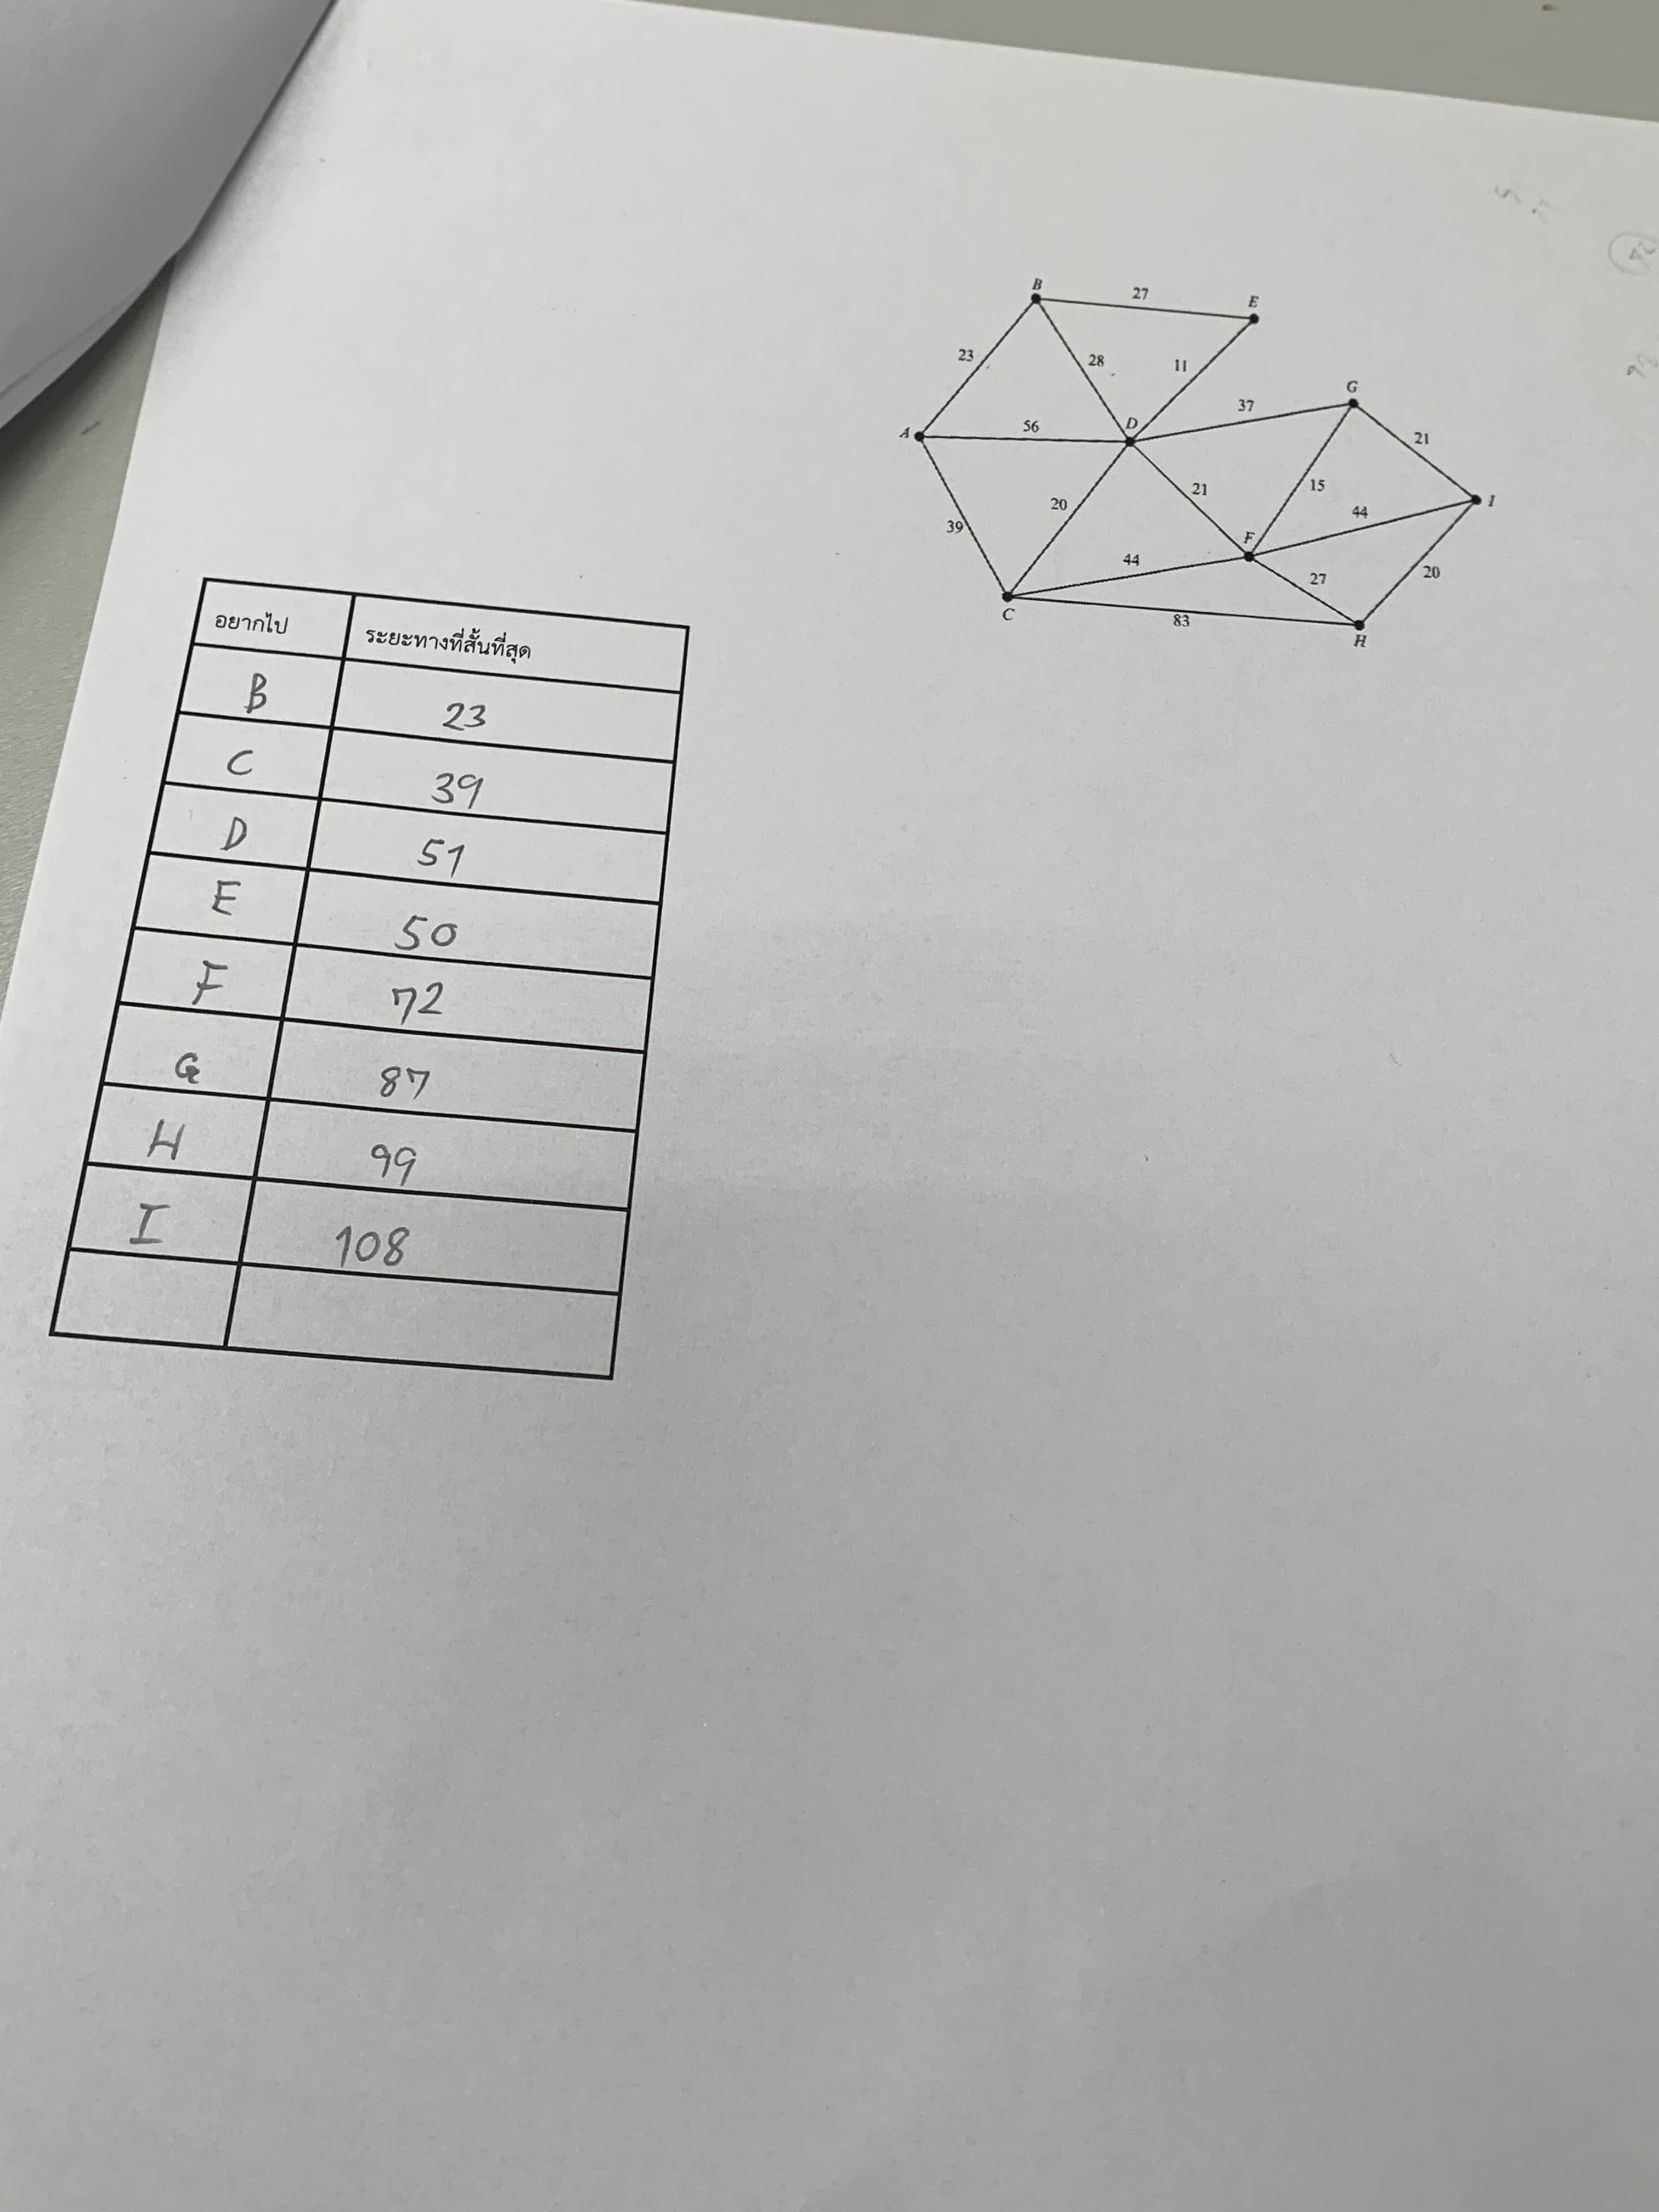 B
27
E
23
28
11
G
37
A
56
D
21
20
21
15
I
44
39
F
44
27
20
C
83
H
อยากไป ระยะทางที่สั้นที่สุด
B 23
C 39
D 51
E 50
F 72
G 87
H 99
I 108